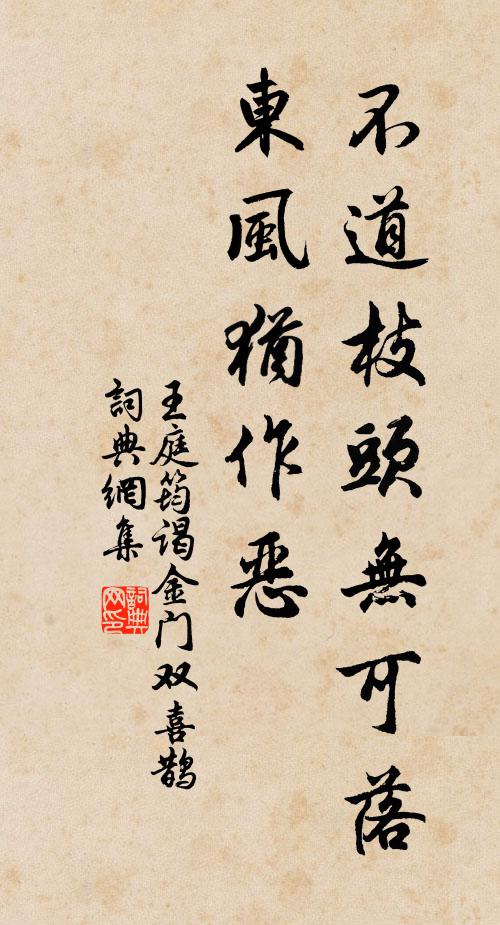 不道枝頭無可落
東風猶作惡
王庭筠謁金门双喜鵲
詞典網集
詞典网印